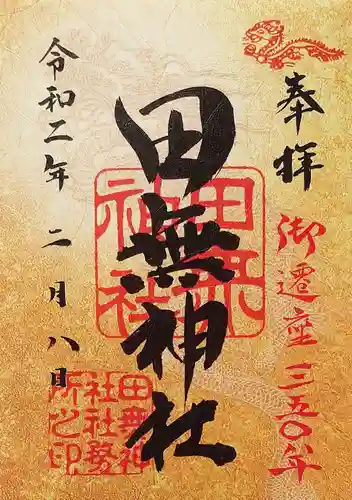 奉拝
御遷座三五〇年
田無神社
令和二年二月八日
田無神社
田無神社社務所之印